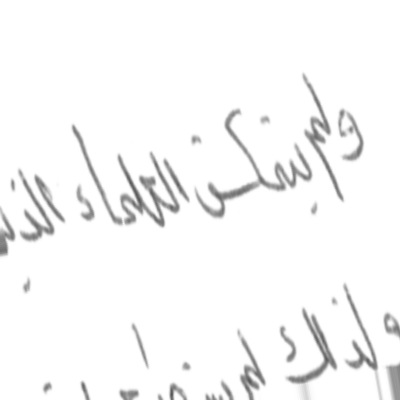 ولم يتمكن العلماء الذين
ولذلك لم